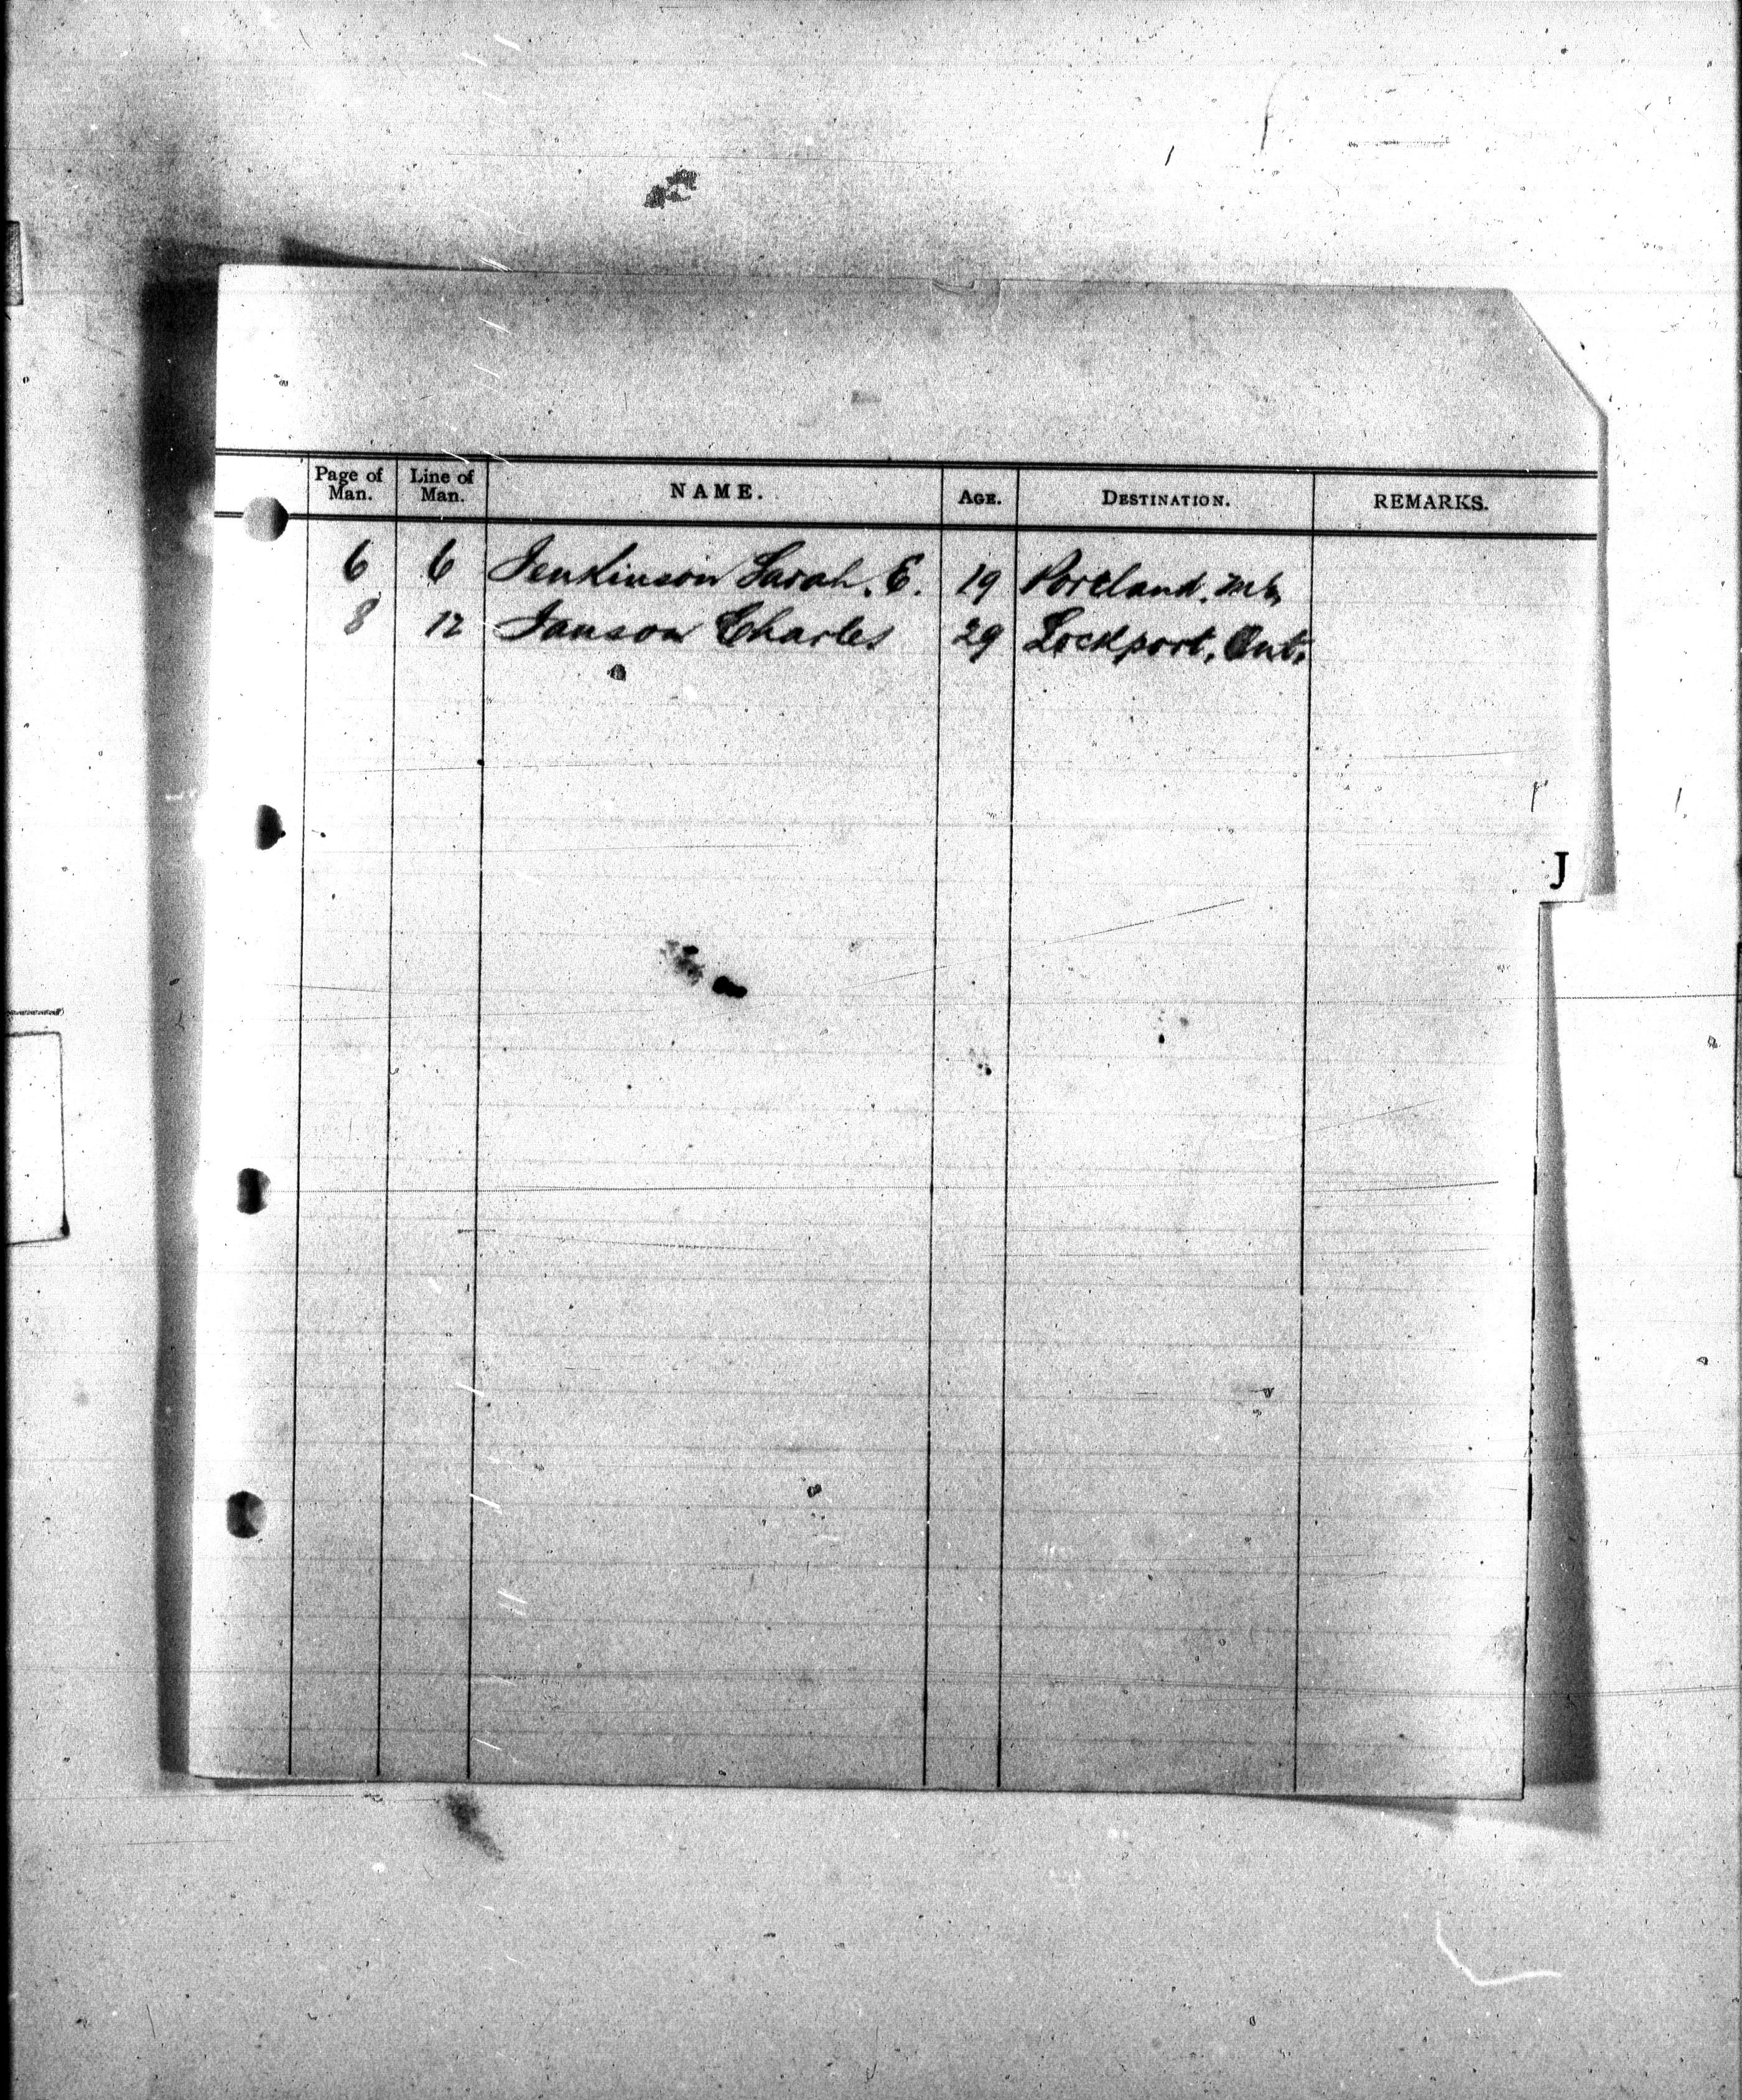 Page of Man. Line of Man. NAME. AGE. DESTINATION. REMARKS.
6 6 Jenkinson Sarah. E. 19 Portland. Me.
8 12 Janson Charles 29 Lockport, Ont.
J